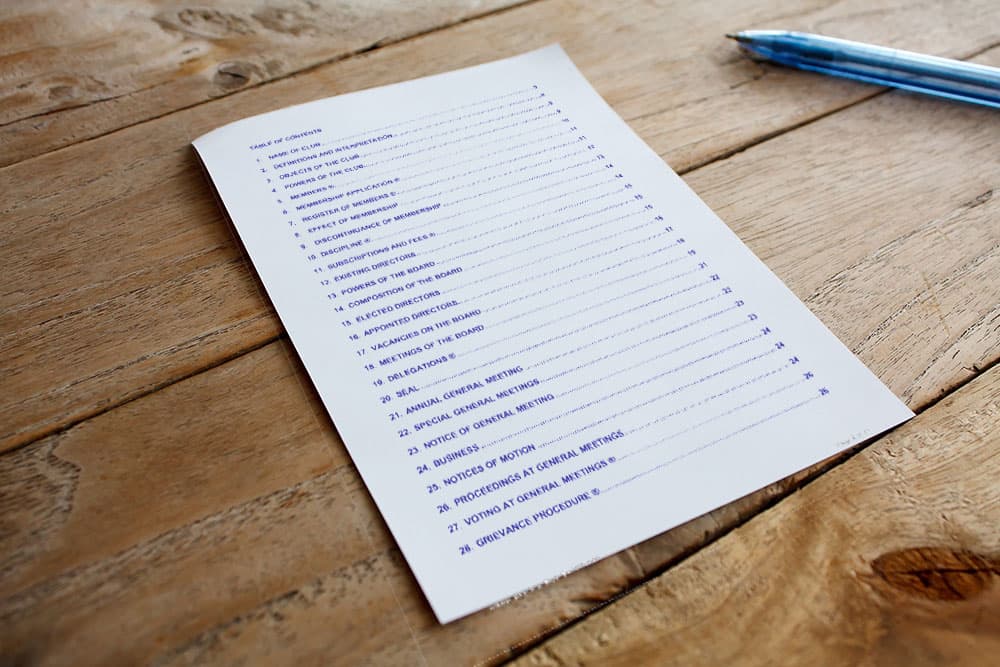 TABLE OF CONTENTS
1. NAME OF CLUB........3
2. DEFINITIONS AND INTERPRETATION........
3. OBJECTS OF THE CLUB........
4. POWERS OF THE CLUB........9
5. MEMBERS ®........10
6. MEMBERSHIP APPLICATION ®........11
7. REGISTER OF MEMBERS ®........11
8. EFFECT OF MEMBERSHIP........12
9. DISCONTINUANCE OF MEMBERSHIP........13
10. DISCIPLINE ®........14
11. SUBSCRIPTIONS AND FEES ®........14
12. EXISTING DIRECTORS........15
13. POWERS OF THE BOARD........15
14. COMPOSITION OF THE BOARD........15
15. ELECTED DIRECTORS........16
16. APPOINTED DIRECTORS........17
17. VACANCIES ON THE BOARD........18
18. MEETINGS OF THE BOARD........19
19. DELEGATIONS ®........21
20. SEAL........22
21. ANNUAL GENERAL MEETING........22
22. SPECIAL GENERAL MEETINGS........23
23. NOTICE OF GENERAL MEETING........23
24. BUSINESS........24
25. NOTICES OF MOTION........24
26. PROCEEDINGS AT GENERAL MEETINGS........24
27. VOTING AT GENERAL MEETINGS ®........26
28. GRIEVANCE PROCEDURE ®........26